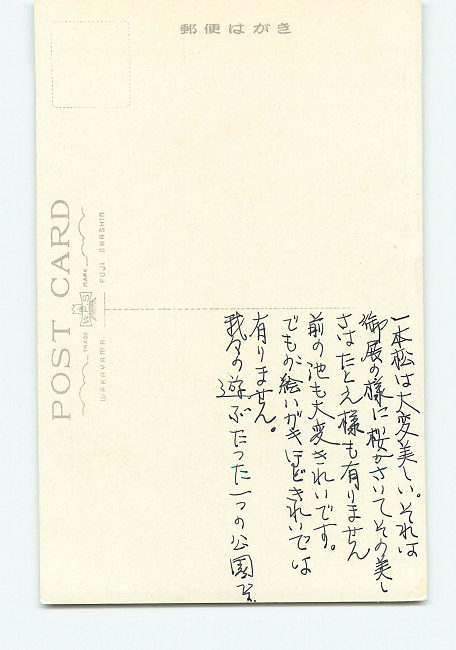 郵便はがき
POST CARD
TRADE MARK
W.F.S
WAKAYAMA FUJI SHASHIN
一本松は大変美しい。それは
御殿の様に桜がさいてその美し
さはたとえ様も有りません
前の池も大変きれいです。
でもが絵いがきほどきれいでは
有りません。
我々の遊ぶたった一つの公園